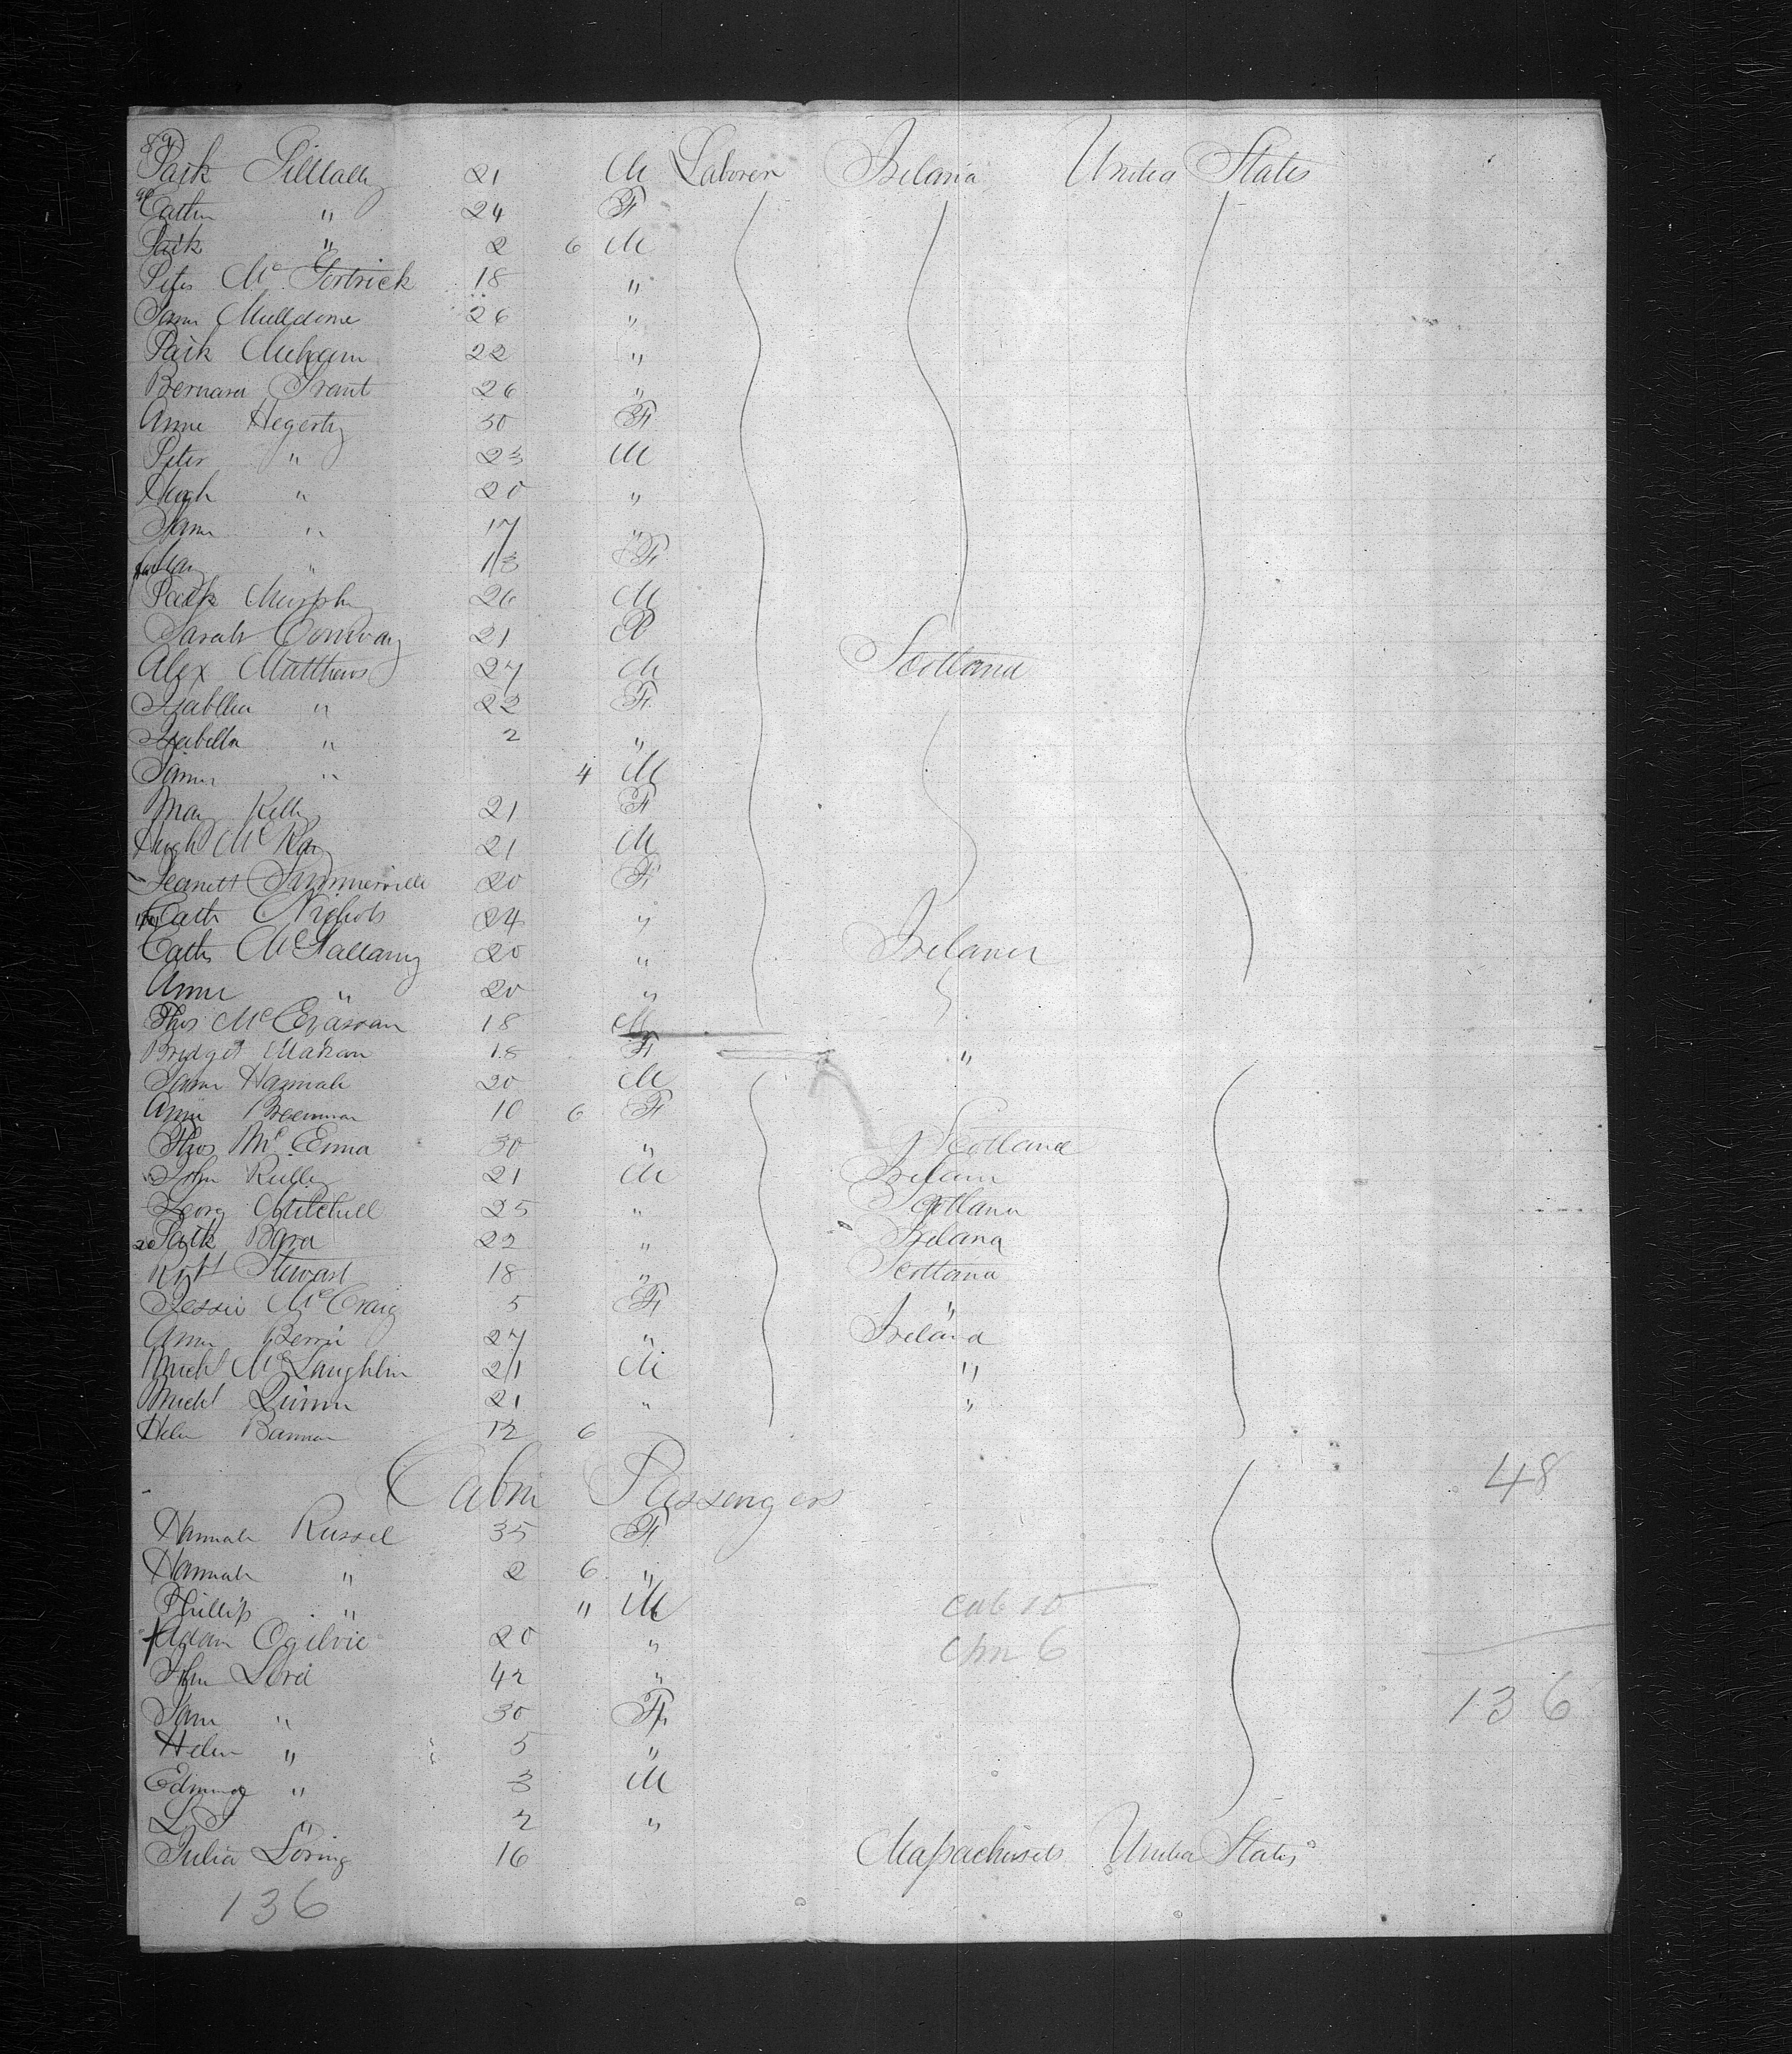 89
Patk 21 M Laborer Ireland United States
90 Cathn " 24 F
Patk " 2 6 M
Peter Mc 18 "
James Muldone 26 "
Patk Meham 22 "
Bernard Grant 26 "
Anne Hegerty 50 F
Peter " 23 M
Hugh " 20 "
James " 17 "
Mary " 13 F
Patk Murphy 26 M
Sarah Conway 21 F
Alex Matthews 27 M Scotland
Isabella " 22 F
Isabella " 2 "
James " 4 M
Mary Kelly 21 F
Hugh McKay 21 M
Jeanett Summerville 20 F
Cath Nichols 24 "
Cath Mc 20 " Ireland
Anne " 20 "
Thos Mc 18 M
Bridget 18 F "
James Hannah 20 M
Ann Brennan 10 6 F
Thos McEnna 30 " Scotland
John Reilly 21 M Ireland
Georg Mitchell 25 " Scotland
20 Patk 22 " Ireland
Robt Stewart 18 " Scotland
Jessie McCraig 5 F "
Ann 27 " Ireland
Michl McLaughlin 21 M "
Michl Quinn 21 " "
Helen Bannan 12 6
Cabin Passengers 48
Hannah Russel 35 F
Hannah " 2 6 "
Phillip " " M cab 10
Adam Ogilvie 20 " chn 6
John Lord 42 "
Jane " 30 F 136
Helen " 5 "
Edmund " 3 M
L S " 2 "
Julia Loring 16 Massachusets United States
136